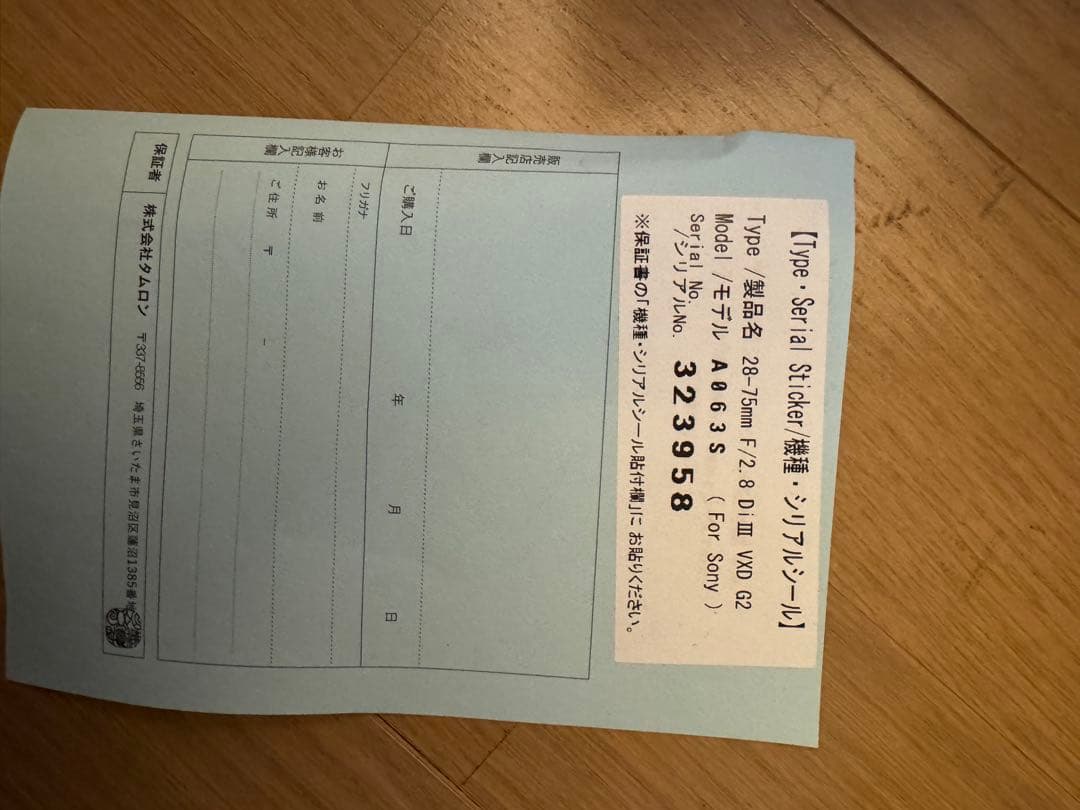 【Type・Serial Sticker/機種・シリアルシール】
Type /製品名 28-75mm F/2.8 DiⅢ VXD G2
Model /モデル A063S ( For Sony )
Serial No.
/シリアルNo. 323958
※保証書の「機種・シリアルシール貼付欄」に お貼りください。
販売店記入欄
ご購入日 年 月 日
お客様記入欄
フリガナ
お名前
ご住所 〒 -
保証者 株式会社タムロン 〒337-8556 埼玉県さいたま市見沼区蓮沼1385番地